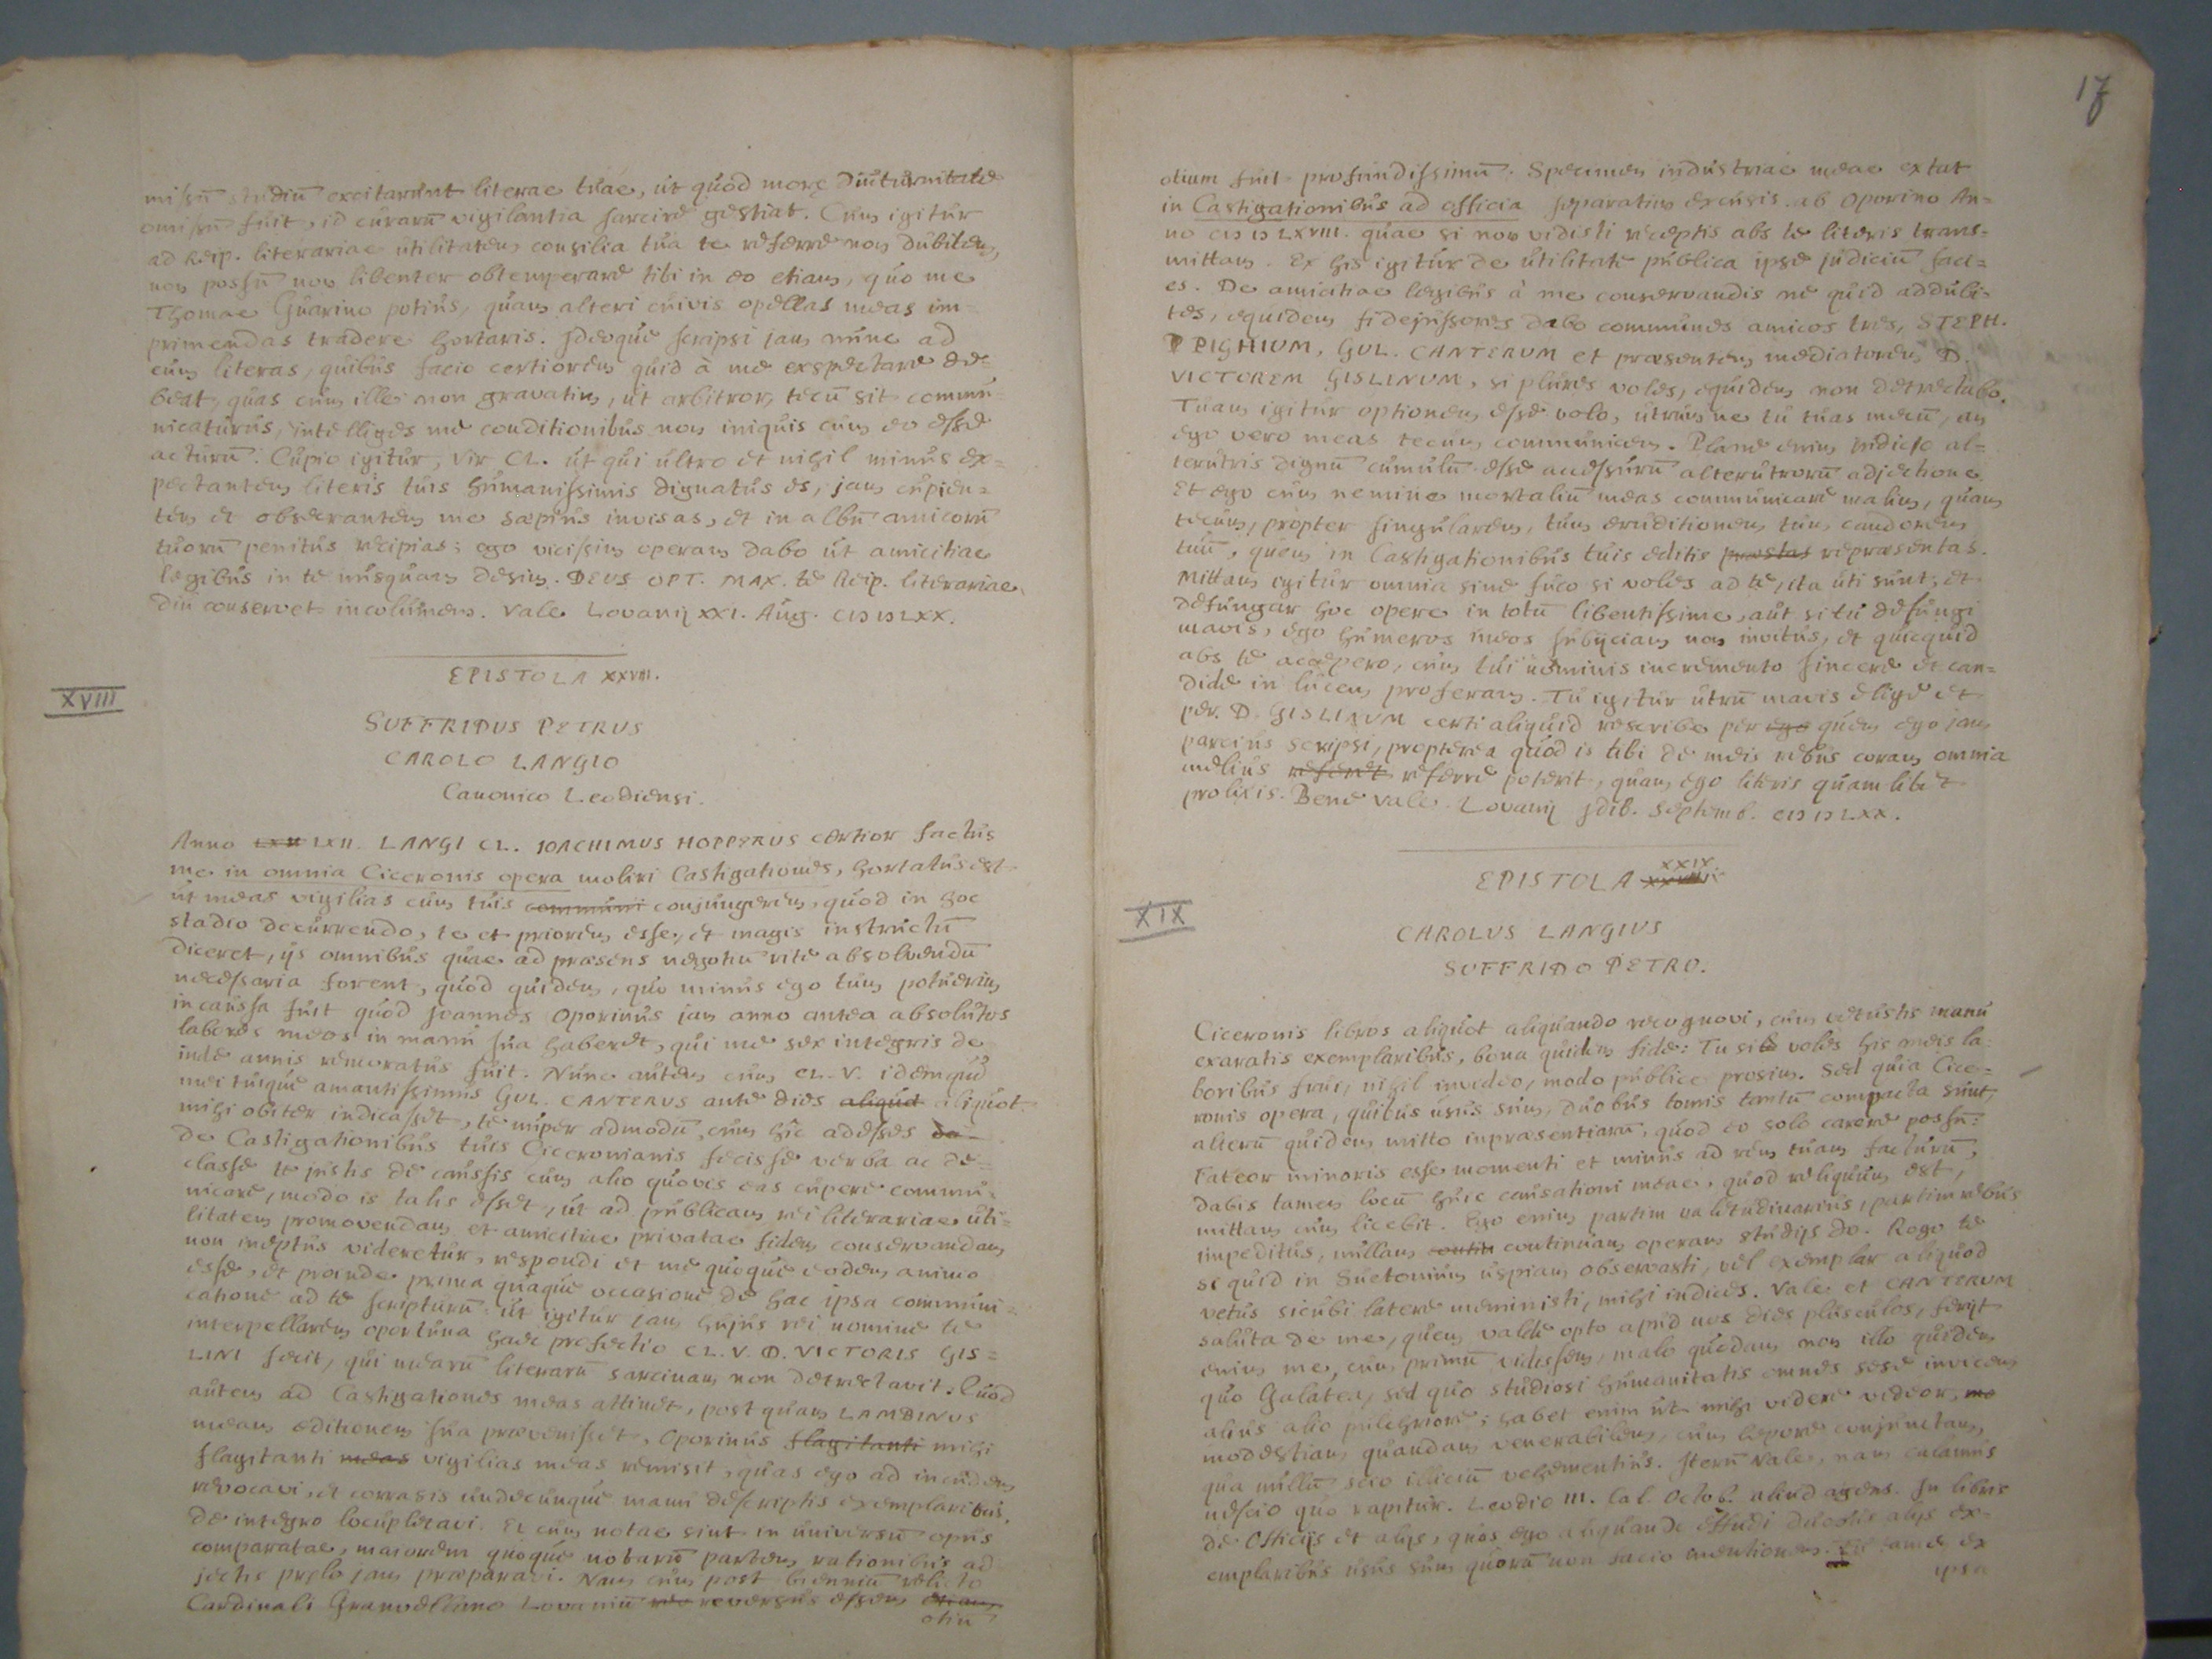 missū studiū excitarunt literae tuae, ut quod more diuturnitate
omissū fuit, id curarū vigilantia sarcire gestiat. Cum igitur
ad Reip. literariae utilitatem consilia tua te referre non dubitem,
non possū non libenter obtemperare tibi in eo etiam, quo me
Thomae Guarino potius, quam alteri cuivis opellas meas im-
primendas tradere hortaris. Ideoque scripsi jam nunc ad
eum literas, quibus facio certiorem quid à me exspectare de-
beat, quas cum ille non gravatim, ut arbitror, tecū sit commu-
nicaturus, intelliges me conditionibus non iniquis cum eo esse
acturū. Cupio igitur, Vir CL. ut qui ultro et nihil minus ex-
pectantem literis tuis humanissimis dignatus es, jam cupien-
tem et observantem me saepius invisas, et in albū amicorū
tuorū penitus recipias; ego vicissim operam dabo ut amicitiae
legibus in te nusquam desim. DEUS OPT. MAX. te Reip. literariae
diu conservet incolumem. Vale Lovanij XXI. Aug. CIↃ IↃ LXX.
EPISTOLA XXVIII.
XVIII
SUFFRIDUS PETRUS
CAROLO LANGIO
Canonico Leodiensi.
Anno LXII LXII. LANGI CL. IOACHIMUS HOPPERUS certior factus
me in omnia Ciceronis opera moliri Castigationes, hortatus est
ut meas vigilias cum tuis communi conjungerem, quod in hoc
stadio decurrendo, te et priorem esse, et magis instructū
diceret, ijs omnibus quae ad praesens negotiū rite absolvendū
necessaria forent, quod quidem, quo minus ego tum potuerim
in caussa fuit quod Joannes Oporinus jam anno antea absolutos
labores meos in manu sua haberet, qui me sex integris de
inde annis remoratus fuit. Nunc autem cum CL. V. idemque
mei tuique amantissimus GUL. CANTERUS ante dies aliquot aliquot
mihi obiter indicasset, te nuper admodū, cum hic adesses de
de Castigationibus tuis Ciceronianis fecisse verba ac de-
classe te justis de caussis cum alio quovis eas cupere commu-
nicare, modo is talis esset, ut ad publicam rei literariae uti-
litatem promovendam et amicitiae privatae fidem conservandam
non ineptus videretur, respondi et me quoque eodem animo
esse, et proinde prima quaque occasione de hac ipsa communi-
catione ad te scripturū. Ut igitur jam hujus rei nomine te
interpellarem oportuna haec profectio CL. V. D. VICTORIS GIS-
LINI fecit, qui mearū literarū sarcinam non detrectavit. Quod
autem ad Castigationes meas attinet, postquam LAMBINUS
meam editionem sua praevenisset, Oporinus flagitanti mihi
flagitanti meas vigilias meas remisit, quas ego ad incudem
revocavi, et corrasis undecunque manu descriptis exemplaribus,
de integro locupletavi. Et cum notae sint in universū opus
comparatae, maiorem quoque notarū partem rationibus ad
jectis prelo jam praeparavi. Nam cum post biennū relicto
Cardinali Granvellano Lovaniū reversus essem etiam
otiū
17
otium fuit profundissimū. Specimen industriae meae extat
in Castigationibus ad officia separatim excusis ab Oporino An-
no CIↃ IↃ LXVIII. quae si non vidisti receptis abs te literis trans-
mittam. Ex his igitur de utilitate publica ipse judiciū faci-
es. De amicitiae legibus à me conservandis ne quid addubi-
tes, equidem fidejussores dabo communes amicos tres, STEPH.
PIGHIUM, GUL. CANTERUM et praesentem mediatorem D.
VICTOREM GISLINUM, si plures voles, equidem non detrectabo.
Tuam igitur optionem esse volo, utrum ne tu tuas mecū, an
ego vero meas tecum communicem. Plane enim judico al-
terutris dignū cumulū esse accessurū alterutrorū adjectione.
Et ego cum nemine mortaliū meas communicare malim, quam
tecum, propter singularem, tum eruditionem tum candorem
tuū, quem in Castigationibus tuis editis praestas repraesentas.
Mittam igitur omnia sine fuco si voles ad te, ita uti sunt, et
defungar hoc opere in totū libentissime, aut si tu defungi
mavis, ego humeros meos subijciam non invitus, et quicquid
abs te accepero, cum tui nominis incremento sincere et can-
dide in lucem proferam. Tu igitur utrū mavis elige et
per D. GISLINUM certi aliquid rescribe per ego quem ego jam
parcius scripsi, propterea quod is tibi de meis rebus coram omnia
melius referet referre poterit, quam ego literis quamlibet
prolixis. Bene vale. Lovanij Idib. Septemb. CIↃ IↃ LXX.
XXIX
EPISTOLA XXVIII.
XIX
CAROLUS LANGIUS
SUFFRIDO PETRO.
Ciceronis libros aliquot aliquando recognovi, cum vetustis manu
exaratis exemplaribus, bona quidem fide: Tu si voles his meis la-
boribus frui, nihil invideo, modo publice prosim. Sed quia Cice-
ronis opera, quibus usus sum, duobus tomis tantū compacta sunt,
alterū quidem mitto inpraesentiarū, quod eo solo carere possū:
Fateor minoris esse momenti et minus ad rem tuam facturū,
dabis tamen locū huic causationi meae, quod reliquum est,
mittam cum licebit. Ego enim partim valetudinarius, partim rebus
impeditus, nullam contin continuam operam studijs do. Rogo te
si quid in Suetonium uspiam observasti, vel exemplar aliquod
vetus sicubi latere meministi, mihi indices. Vale et CANTERUM
saluta de me, quem valde opto apud nos dies plusculos, ferijt
enim me, cum primū vidissem, malo quodam non illo quidem
quo Galatea, sed quo studiosi humanitatis omnes sese invicem
alius alio pulchriore; habet enim ut mihi videre videor, mo
modestiam quandam venerabilem, cum lepore conjunctam,
qua nullū scio illiciū vehementius. Iterū Vale, nam calamus
nescio quo rapitur. Leodio III. Cal. Octob. aliud agens. In libris
de Officijs et alijs, quos ego aliquando effudi alijs ex-
emplaribus usus sum quorū non facio mentionem. tamen ex
ipsa